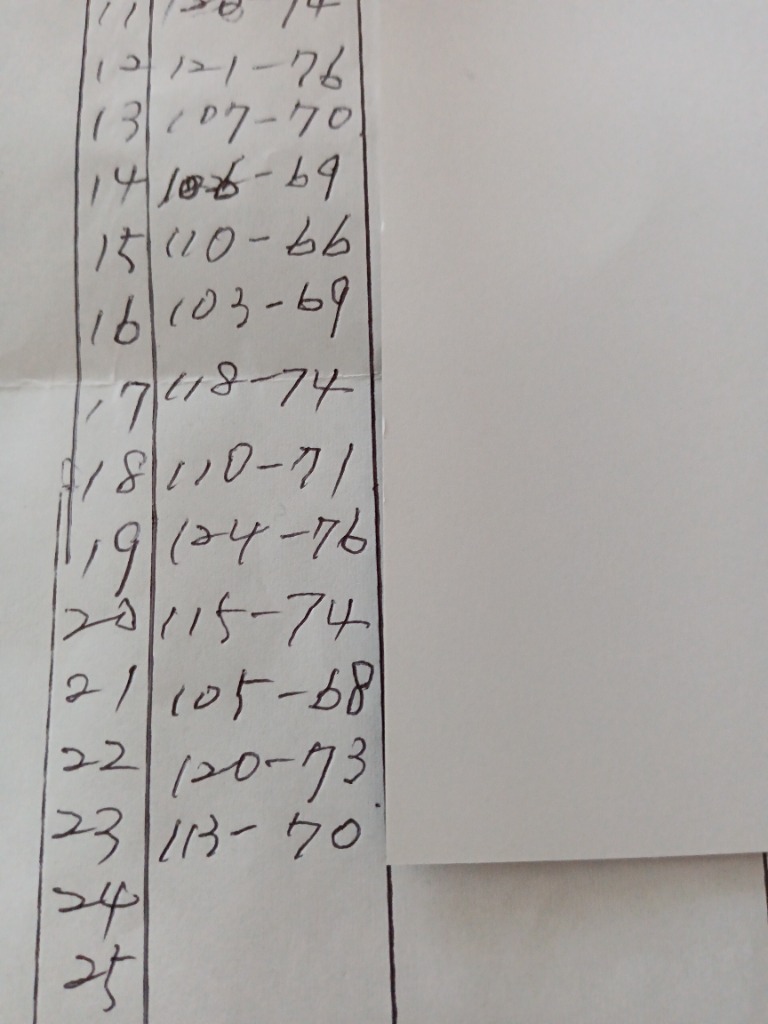 11
12 121-76
13 107-70
14 106-69
15 110-66
16 103-69
17 118-74
18 110-71
19 124-76
20 115-74
21 105-68
22 120-73
23 113-70
24
25